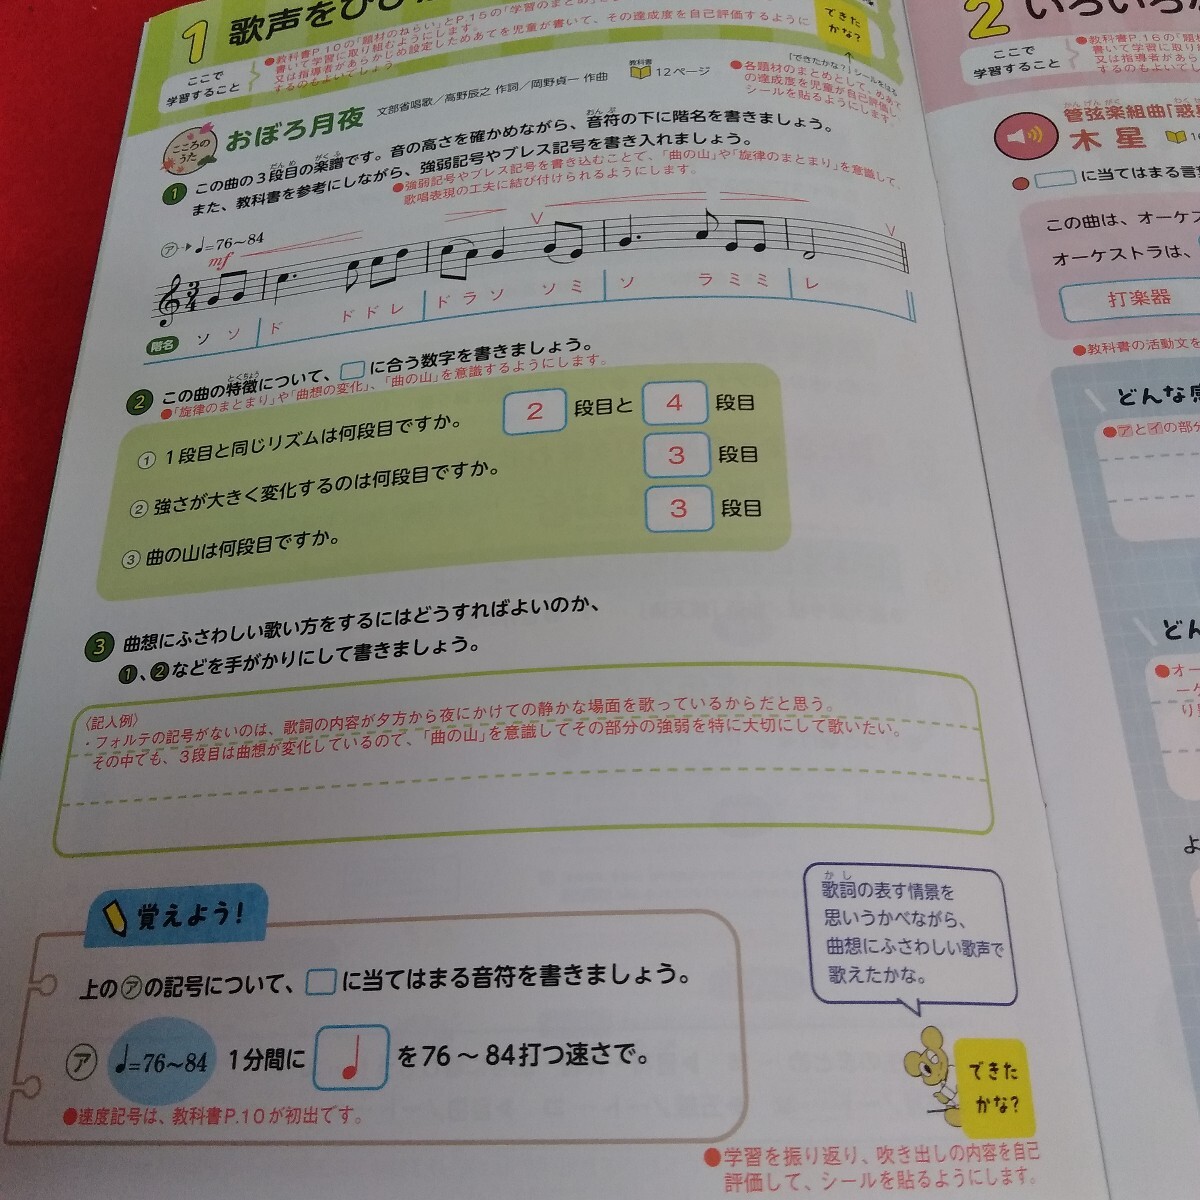 1 歌声を
ここで
学習すること
●教科書P.10の「題材のねらい」とP.15の「学習のまとめ」
書いて学習に取り組むようにします。
又は指導者があらかじめ設定しためあてを児童が書いて、その達成度を自己評価するように
するのもよいでしょう。
できた
かな?
「できたかな?」シールを貼る
●各題材のまとめとして、めあて
の達成度を児童が自己評価し、
シールを貼るようにします。
こころの
うた
おぼろ月夜
文部省唱歌/高野辰之 作詞/岡野貞一 作曲
教科書
12ページ
1 この曲の3段目の楽譜です。音の高さを確かめながら、音符の下に階名を書きましょう。
また、教科書を参考にしながら、強弱記号やブレス記号を書き入れましょう。
●強弱記号やブレス記号を書き込むことで、「曲の山」や「旋律のまとまり」を意識して、
歌唱表現の工夫に結び付けられるようにします。
㋐ ♩=76〜84
mf
階名 ソ ソ ド ド ド レ ド ラ ソ ソ ミ ソ ラ ミ ミ レ
2 この曲の特徴について、□に合う数字を書きましょう。
●「旋律のまとまり」や「曲想の変化」、「曲の山」を意識するようにします。
① 1段目と同じリズムは何段目ですか。 2 段目と 4 段目
② 強さが大きく変化するのは何段目ですか。 3 段目
③ 曲の山は何段目ですか。 3 段目
3 曲想にふさわしい歌い方をするにはどうすればよいのか、
1、2などを手がかりにして書きましょう。
〈記入例〉
・フォルテの記号がないのは、歌詞の内容が夕方から夜にかけての静かな場面を歌っているからだと思う。
その中でも、3段目は曲想が変化しているので、「曲の山」を意識してその部分の強弱を特に大切にして歌いたい。
覚えよう!
上の㋐の記号について、□に当てはまる音符を書きましょう。
㋐ ♩=76〜84 1分間に ♩ を76〜84打つ速さで。
●速度記号は、教科書P.10が初出です。
歌詞の表す情景を
思いうかべながら、
曲想にふさわしい歌声で
歌えたかな。
できた
かな?
●学習を振り返り、吹き出しの内容を自己
評価して、シールを貼るようにします。
2 いろいろな
ここで
学習すること
●教科書P.16の「題材
書いて学習に取り
又は指導者があら
するのもよいで
管弦楽組曲「惑星
木星
●□に当てはまる言葉
この曲は、オーケス
オーケストラは、
打楽器
●教科書の活動文を
どんな感
●アとイの部分
どん
●オー
ーケ
り
よ